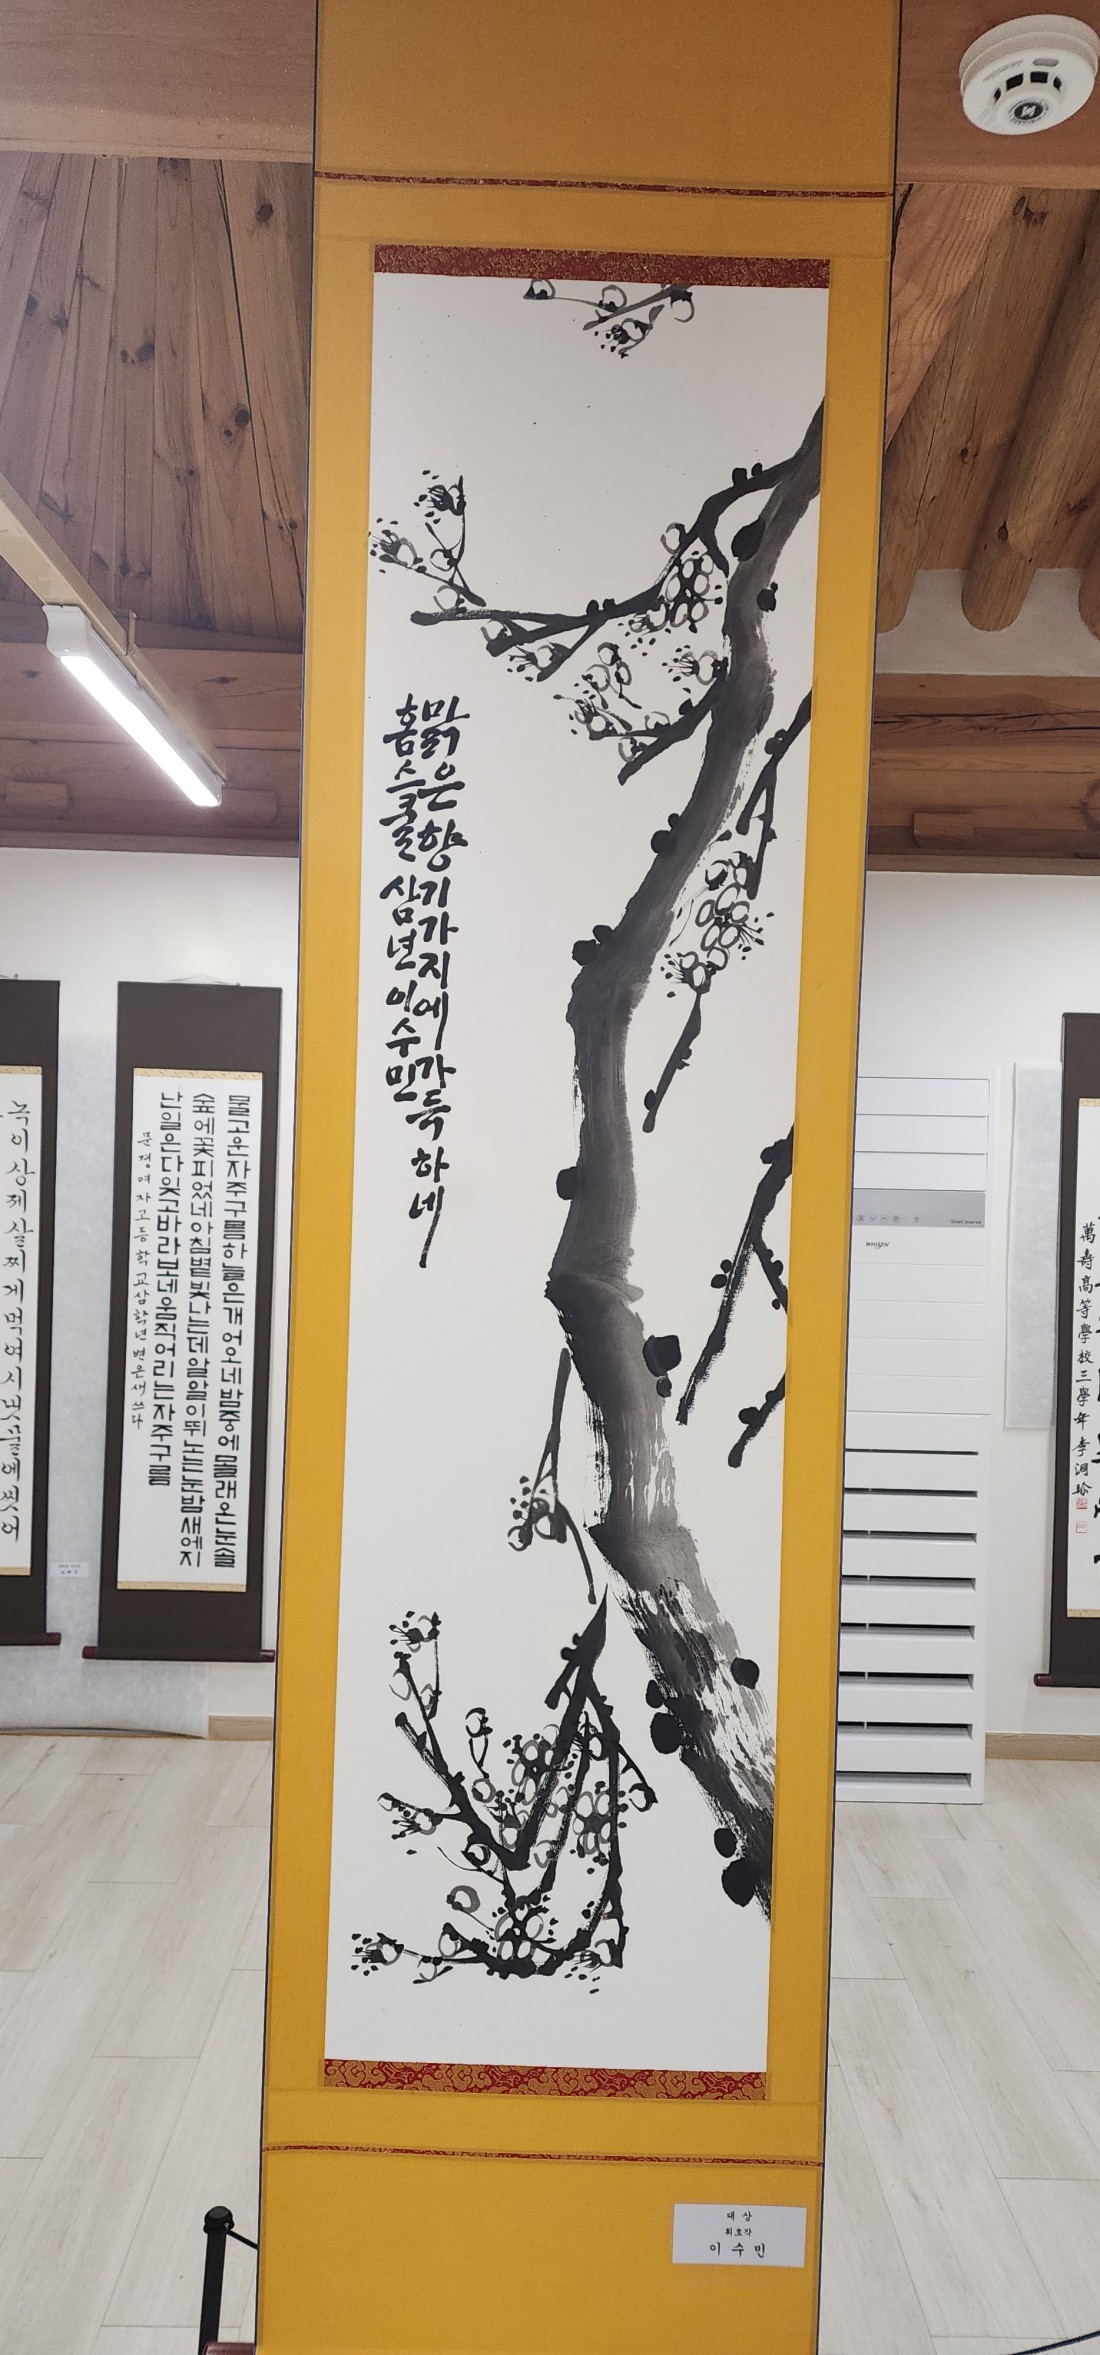 맑은 향기 가지에 가득 하네
홈스쿨 삼년 이수민
대상
휘호작
이수민
녹이상제살찌게먹여시냇물에씻어
물고운자주구름하늘은개어오네밤중에몰래온눈솔
숲에꽃피었네아침볕빛나는데알알이뛰노는눈밤새에지
난일은다잊고바라보네움직어리는자주구름
문정여자고등학교삼학년변은새쓰다
Smart Inverter
WHISEN
萬壽高等學校三學年李